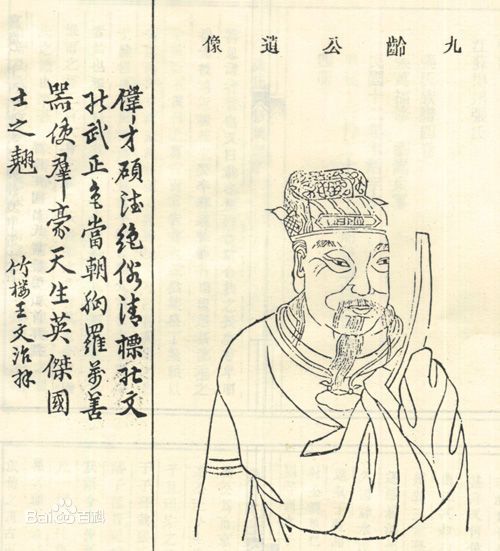 九齡公遺像
偉才碩德絕俗清標能文
能武正色當朝胸羅萬善
器使羣豪天生英傑國
士之翹 竹楼王文治拜
Baidu百科